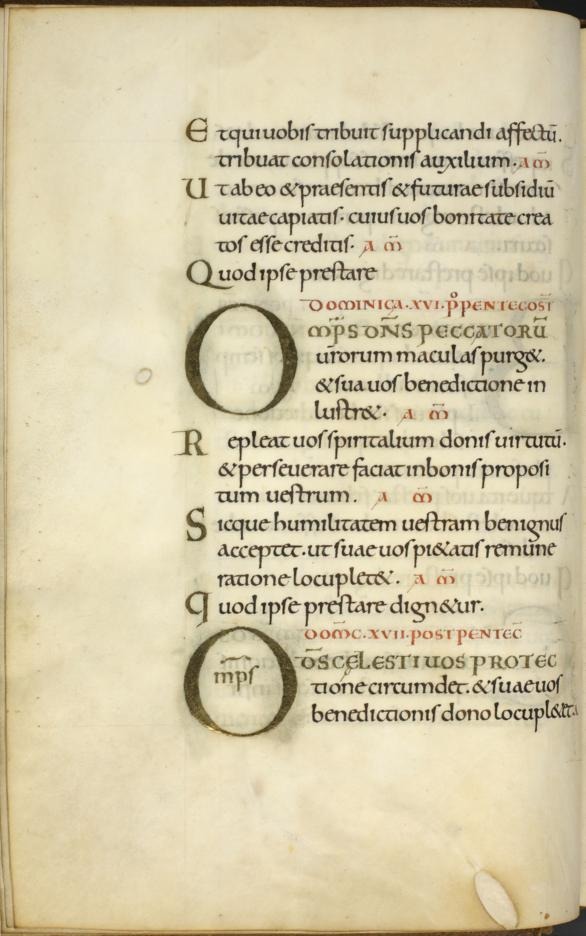 Et qui uobis tribuit supplicandi affectū.
tribuat consolationis auxilium. am̄
Ut ab eo & praesentis & futurae subsidiū
uitae capiatis. cuius uos bonitate crea
tos esse creditis. a m̄
Quod ipse prestare
DOMINICA.XVI.P̊PENTECOST̄
OMP̄S DN̄S PECCATORŪ
ūrorum maculas purg&.
& sua uos benedictione in
lustr&. a m̄
Repleat uos spiritalium donis uirtutū.
& perseuerare faciat in bonis proposi
tum uestrum. a m̄
Sicque humilitatem uestram benignus
acceptet. ut suae uos pi&atis remune
ratione locuplet&. a m̄
Quod ipse prestare dign&ur.
DOMC.XVII.POST PENTEC̄
Omp̄s DS̄ CĘLESTI UOS PROTEC
tione circumdet. & suae uos
benedictionis dono locupl&&